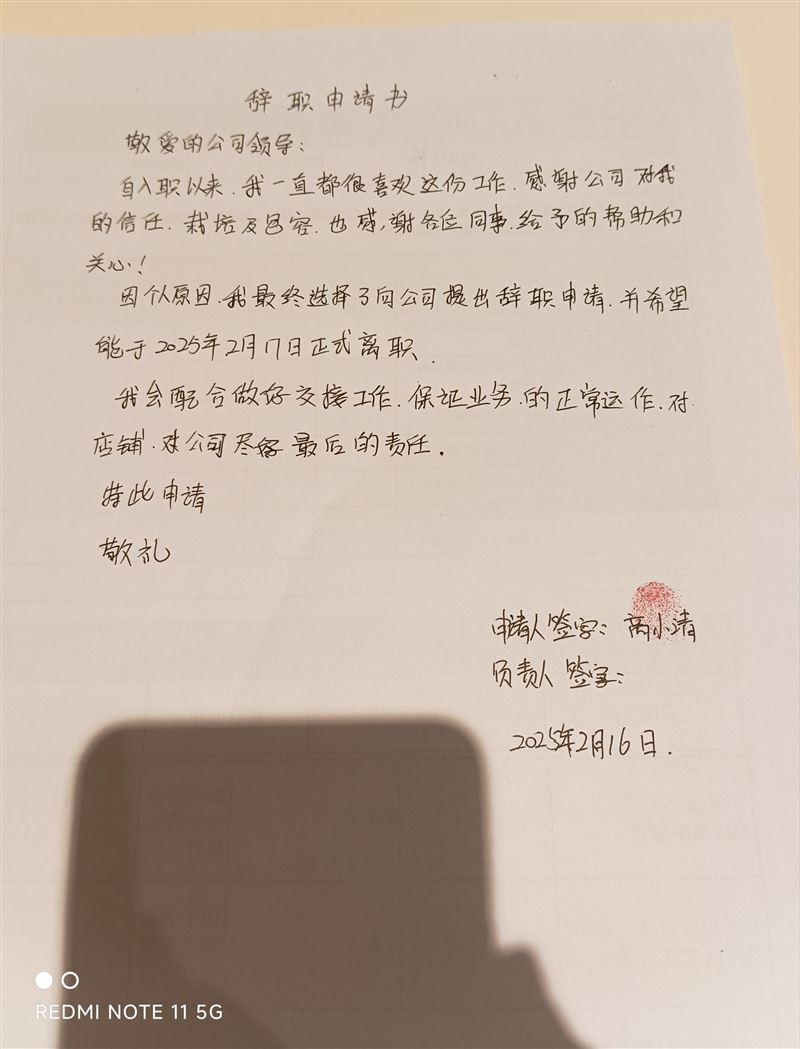 辞职申请书
敬爱的公司领导：
自入职以来，我一直都很喜欢这份工作，感谢公司对我
的信任，栽培及包容，也感谢各位同事，给予的帮助和
关心！
因个人原因，我最终选择了向公司提出辞职申请，并希望
能于2025年2月17日正式离职。
我会配合做好交接工作，保证业务的正常运作，对
店铺，对公司尽最后的责任。
特此申请
敬礼
申请人签字：高小清
负责人签字：
2025年2月16日.
REDMI NOTE 11 5G